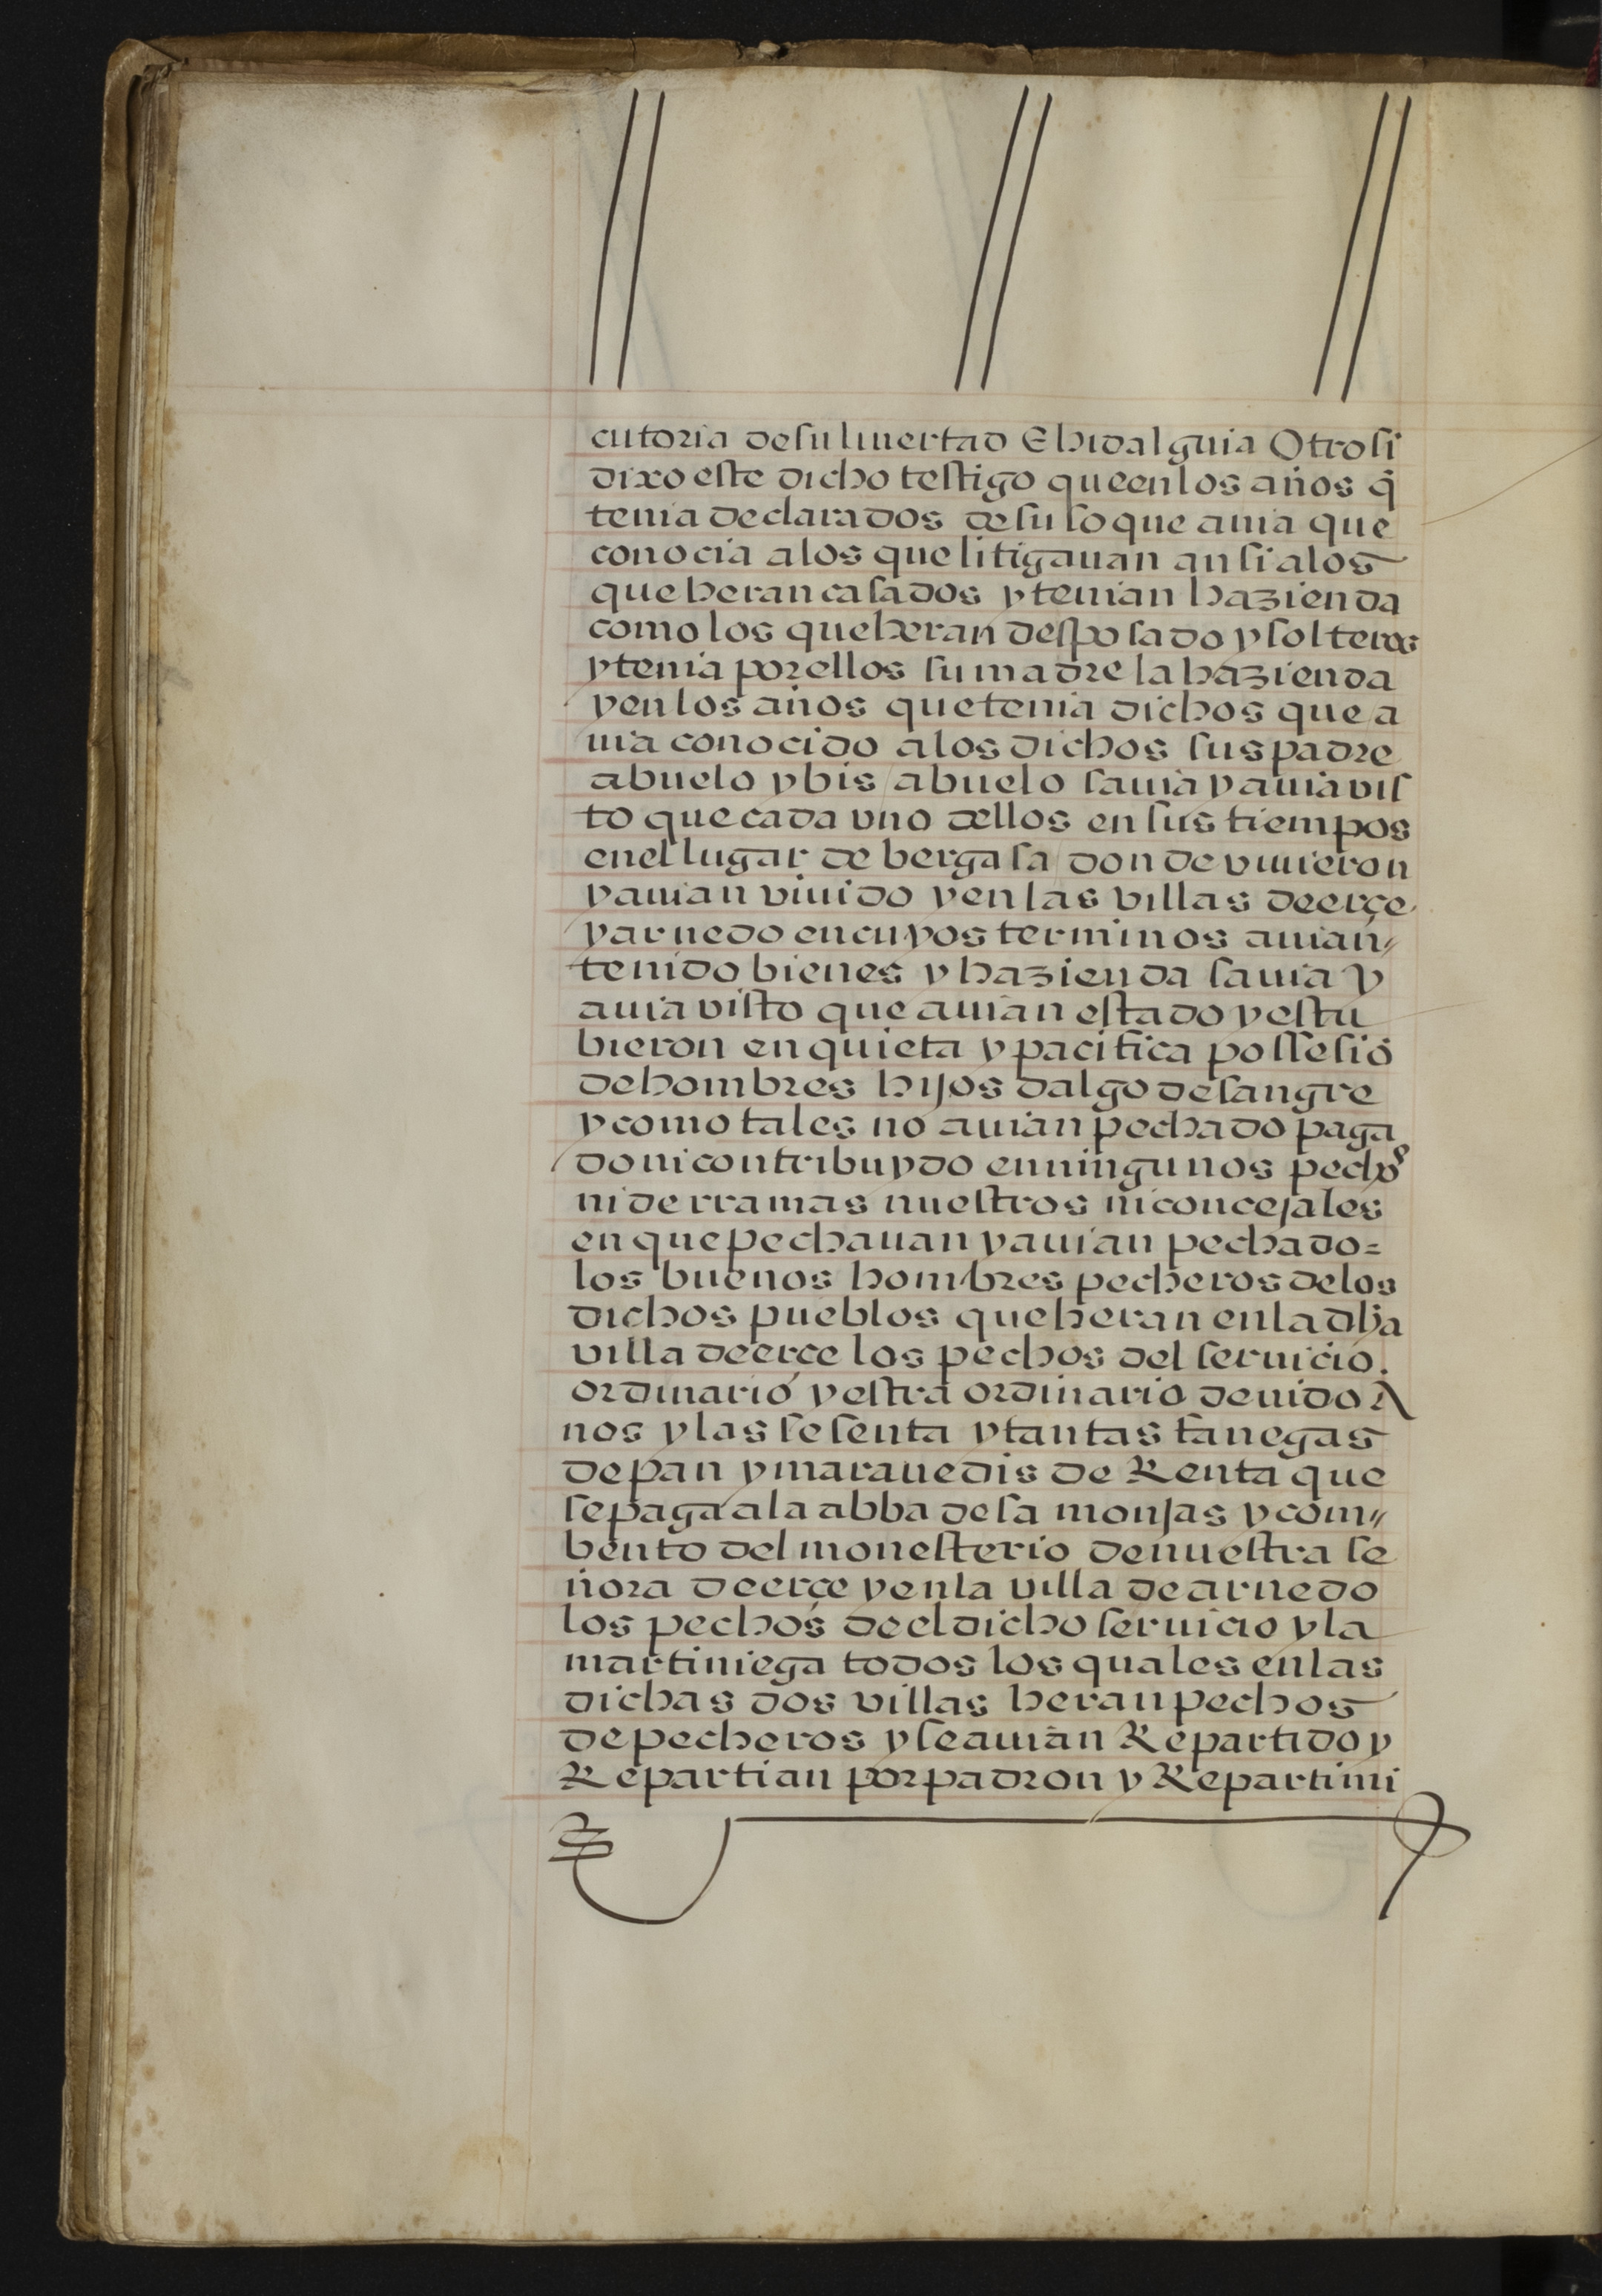 cutoria de su liuertad E hidalguia Otrosi
dixo este dicho testigo que en los años q̃
tenia declarados desuso que auia que
conocia a los que litigauan ansi a los
que heran casados y tenian hazienda
como los que heran desposado y solteros
y tenia por ellos su madre la hazienda
y en los años que tenia dichos que a
uia conocido a los dichos sus padre
abuelo y bis abuelo sauia y auia vis
to que cada vno dellos en sus tiempos
en el lugar de bergasa donde viuieron
y auian viuido y en las villas de erçe
y arnedo en cuyos terminos auian//
tenido bienes y hazienda sauia y
auia visto que auian estado y estu
bieron en quieta y pacifica possesiõ
de hombres hijos dalgo de sangre
y como tales no auian pechado paga
do ni contribuydo en ningunos pechos
ni derramas nuestros ni concejales
en que pechauan y auian pechado=
los buenos hombres pecheros de los
dichos pueblos que heran en la dha
villa de erçe los pechos del seruicio.
ordinario y estra ordinario deuido A
nos y las sesenta y tantas fanegas
de pan y marauedis de Renta que
se paga a la abbadesa monjas y com//
bento del monesterio de nuestra se
ñora de erçe y en la villa de arnedo
los pechos de el dicho seruicio y la
martiniega todos los quales en las
dichas dos villas heran pechos
de pecheros y se auian Repartido y
Repartian por padron y Repartimi